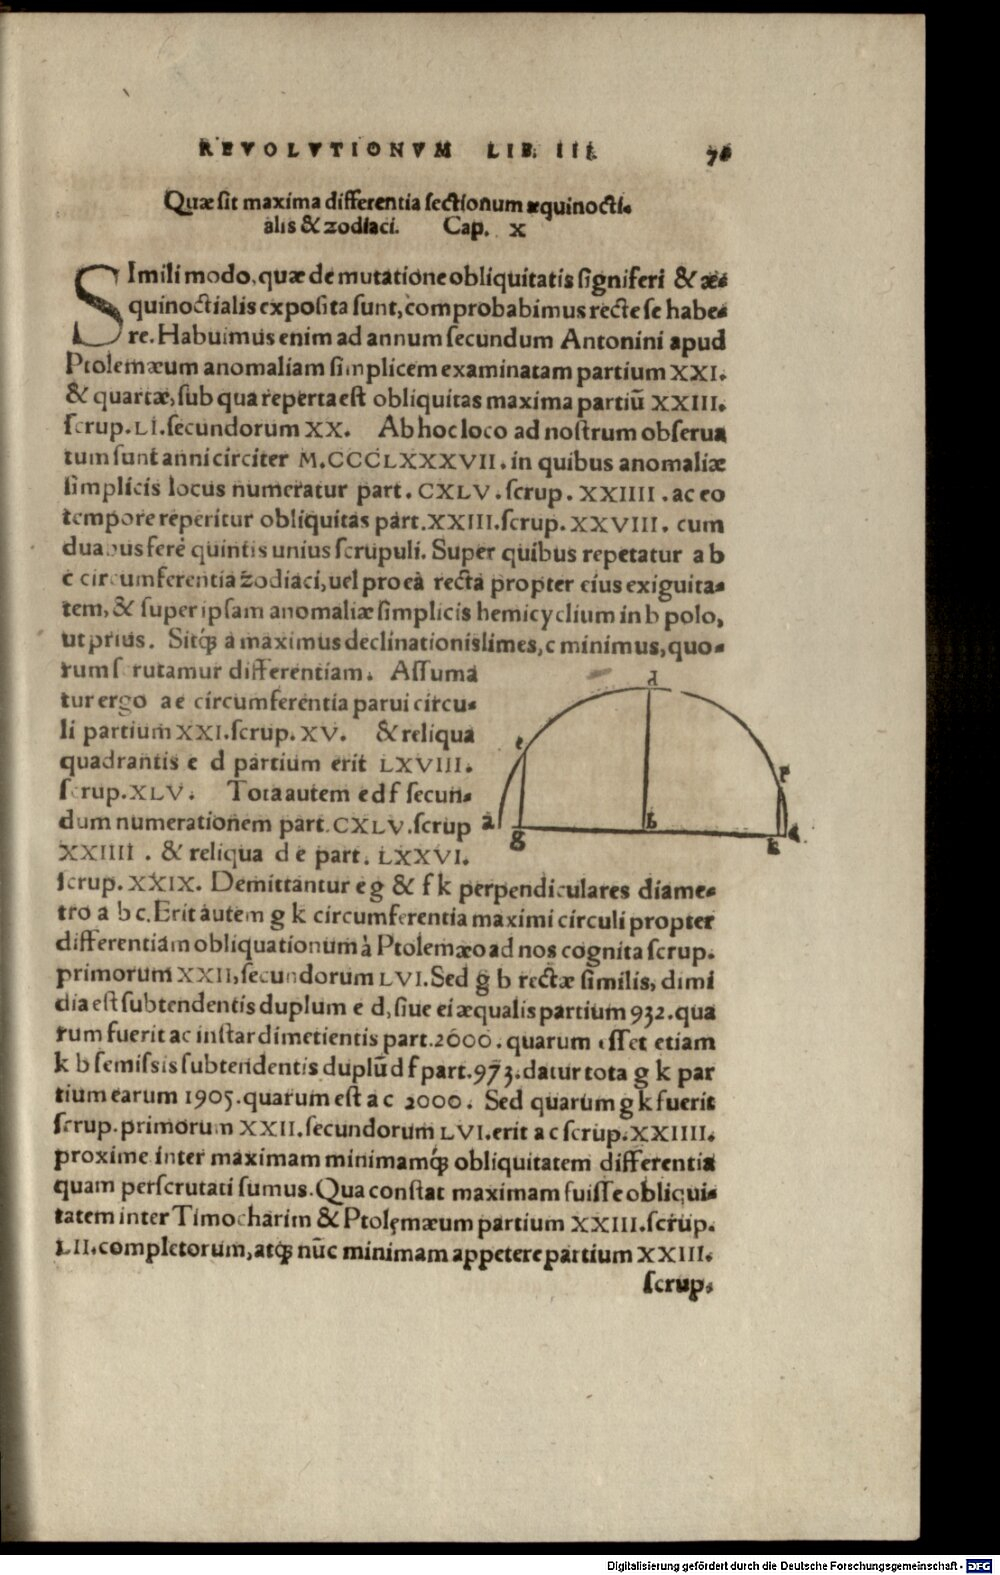 REVOLVTIONVM LIB. III. 76
Quæ sit maxima differentia sectionum æquinocti-
alis & zodiaci. Cap. X
SImili modo, quæ de mutatione obliquitatis signiferi & æ-
quinoctialis exposita sunt, comprobabimus recte se habe-
re. Habuimus enim ad annum secundum Antonini apud
Ptolemæum anomaliam simplicem examinatam partium XXI.
& quartæ, sub qua reperta est obliquitas maxima partiũ XXIII.
scrup. LI. secundorum XX. Ab hoc loco ad nostrum obserua
tum sunt anni circiter M.CCCLXXXVII. in quibus anomaliæ
simplicis locus numeratur part. CXLV. scrup. XXIIII. ac eo
tempore reperitur obliquitas part. XXIII. scrup. XXVIII. cum
duabus ferè quintis unius scrupuli. Super quibus repetatur a b
c circumferentia zodiaci, uel pro ea recta propter eius exiguita-
tem, & super ipsam anomaliæ simplicis hemicyclium in b polo,
ut prius. Sitq́ȝ a maximus declinationis limes, c minimus, quo-
rum scrutamur differentiam. Assuma
tur ergo a e circumferentia parui circu-
li partium XXI. scrup. XV. & reliqua
quadrantis e d partium erit LXVIII.
scrup. XLV. Tota autem e d f secun-
dum numerationem part. CXLV. scrup
XXIIII. & reliqua d e part. LXXVI.
scrup. XXIX. Demittantur e g & f k perpendiculares diame-
tro a b c. Erit autem g k circumferentia maximi circuli propter
differentiam obliquationum à Ptolemæo ad nos cognita scrup.
primorum XXII, secundorum LVI. Sed g b rectæ similis, dimi
dia est subtendentis duplum e d, siue ei æqualis partium 932. qua
rum fuerit ac instar dimetientis part. 2000. quarum esset etiam
k b semissis subtendentis duplũ d f part. 973. datur tota g k par
tium earum 1905. quarum est a c 2000. Sed quarum g k fuerit
scrup. primorum XXII. secundorum LVI. erit a c scrup. XXIIII.
proxime inter maximam minimamq́ȝ obliquitatem differentia
quam perscrutati sumus. Qua constat maximam fuisse obliqui-
tatem inter Timocharim & Ptolęmæum partium XXIII. scrup.
LII. completorum, atq́ȝ nũc minimam appetere partium XXIII.
scrup.
d
e
f
a
g
b
k
c
Digitalisierung gefördert durch die Deutsche Forschungsgemeinschaft - DFG